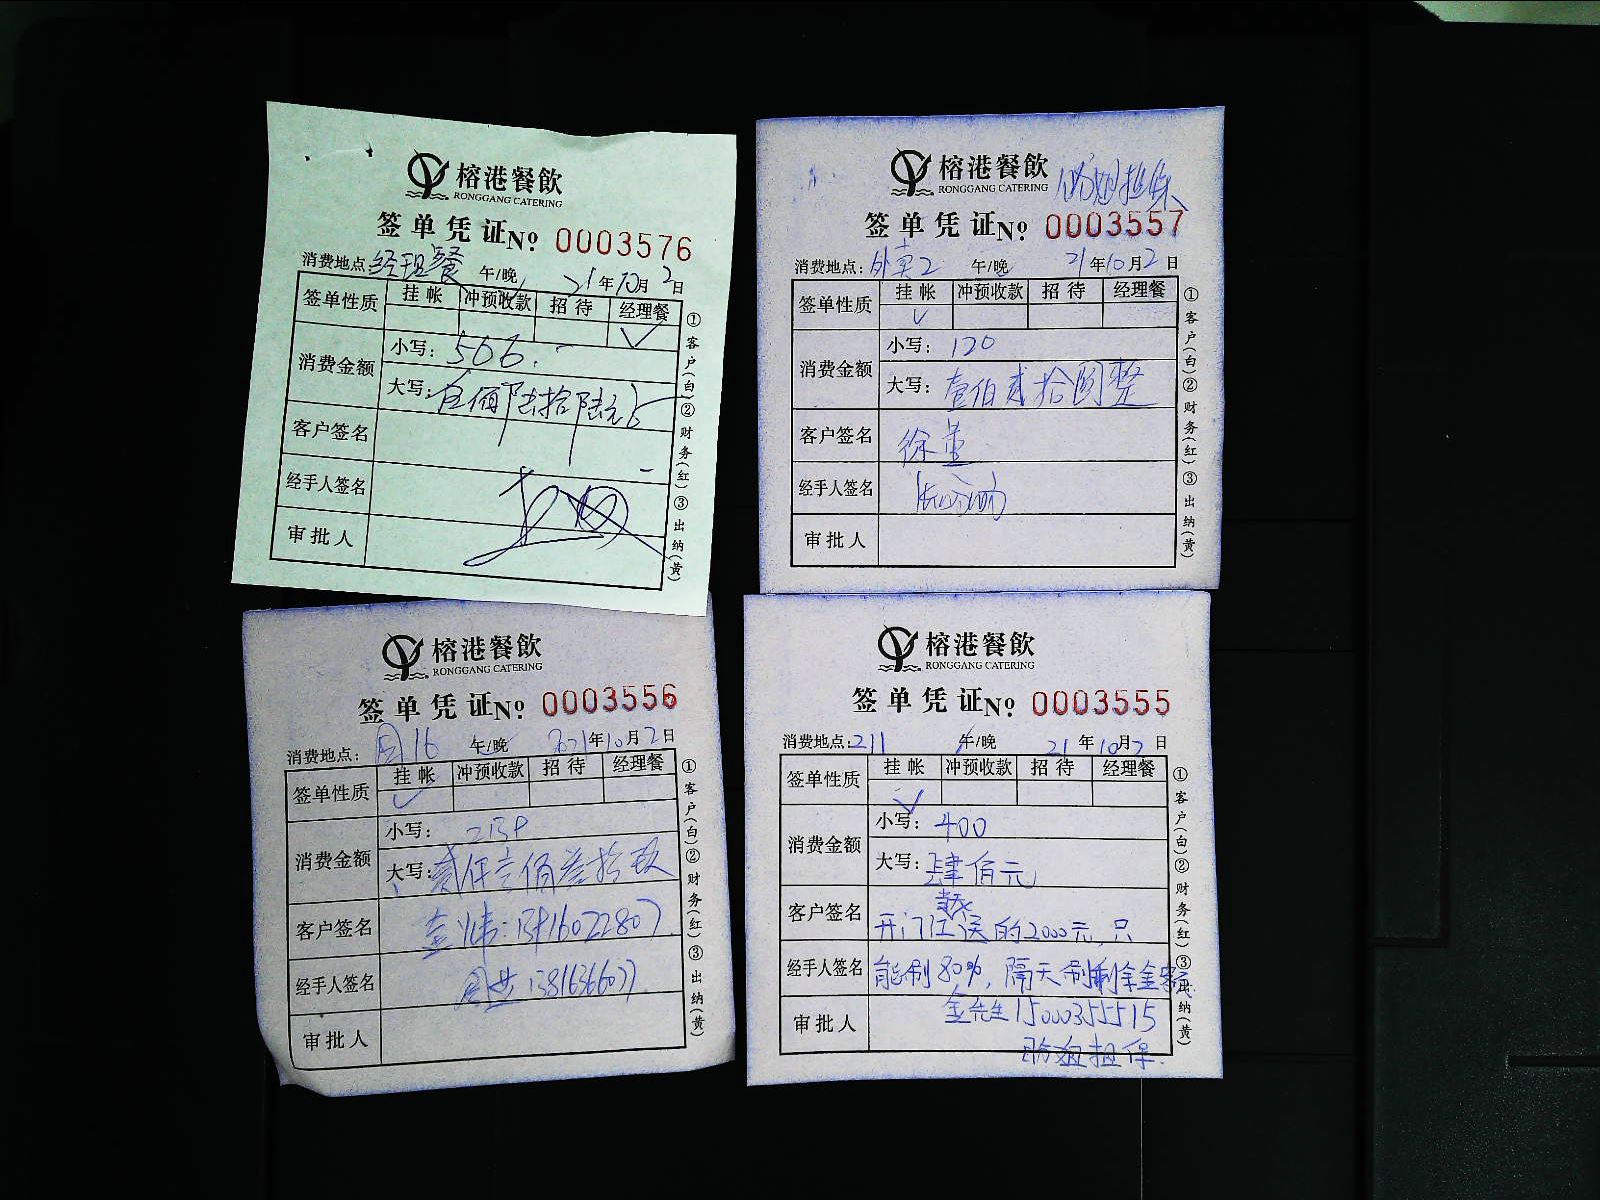 榕港餐飲
RONGGANG CATERING
签单凭证 No 0003576
消费地点: 经理餐 午/晚 21年10月2日
签单性质 挂帐 冲预收款 招待 经理餐
✓
消费金额 小写: 566.-
大写: 伍佰陆拾陆元
客户签名
经手人签名
审批人
①客户(白)②财务(红)③出纳(黄)
榕港餐飲
RONGGANG CATERING
担保
签单凭证 No 0003557
消费地点: 外卖2 午/晚 21年10月2日
签单性质 挂帐 冲预收款 招待 经理餐
✓
消费金额 小写: 120
大写: 壹佰贰拾圆整
客户签名 徐
经手人签名
审批人
①客户(白)②财务(红)③出纳(黄)
榕港餐飲
RONGGANG CATERING
签单凭证 No 0003556
消费地点: 16 午/晚 2021年10月2日
签单性质 挂帐 冲预收款 招待 经理餐
✓
消费金额 小写: 2139
大写: 贰仟壹佰叁拾玖
客户签名
经手人签名
审批人
①客户(白)②财务(红)③出纳(黄)
榕港餐飲
RONGGANG CATERING
签单凭证 No 0003555
消费地点: 211 午/晚 21年10月2日
签单性质 挂帐 冲预收款 招待 经理餐
✓
消费金额 小写: 400
大写: 肆佰元
客户签名 开门红送的2000元,只
经手人签名 能刷80%,隔天刷剩余金额
审批人 金先生15000355515
担保.
①客户(白)②财务(红)③出纳(黄)